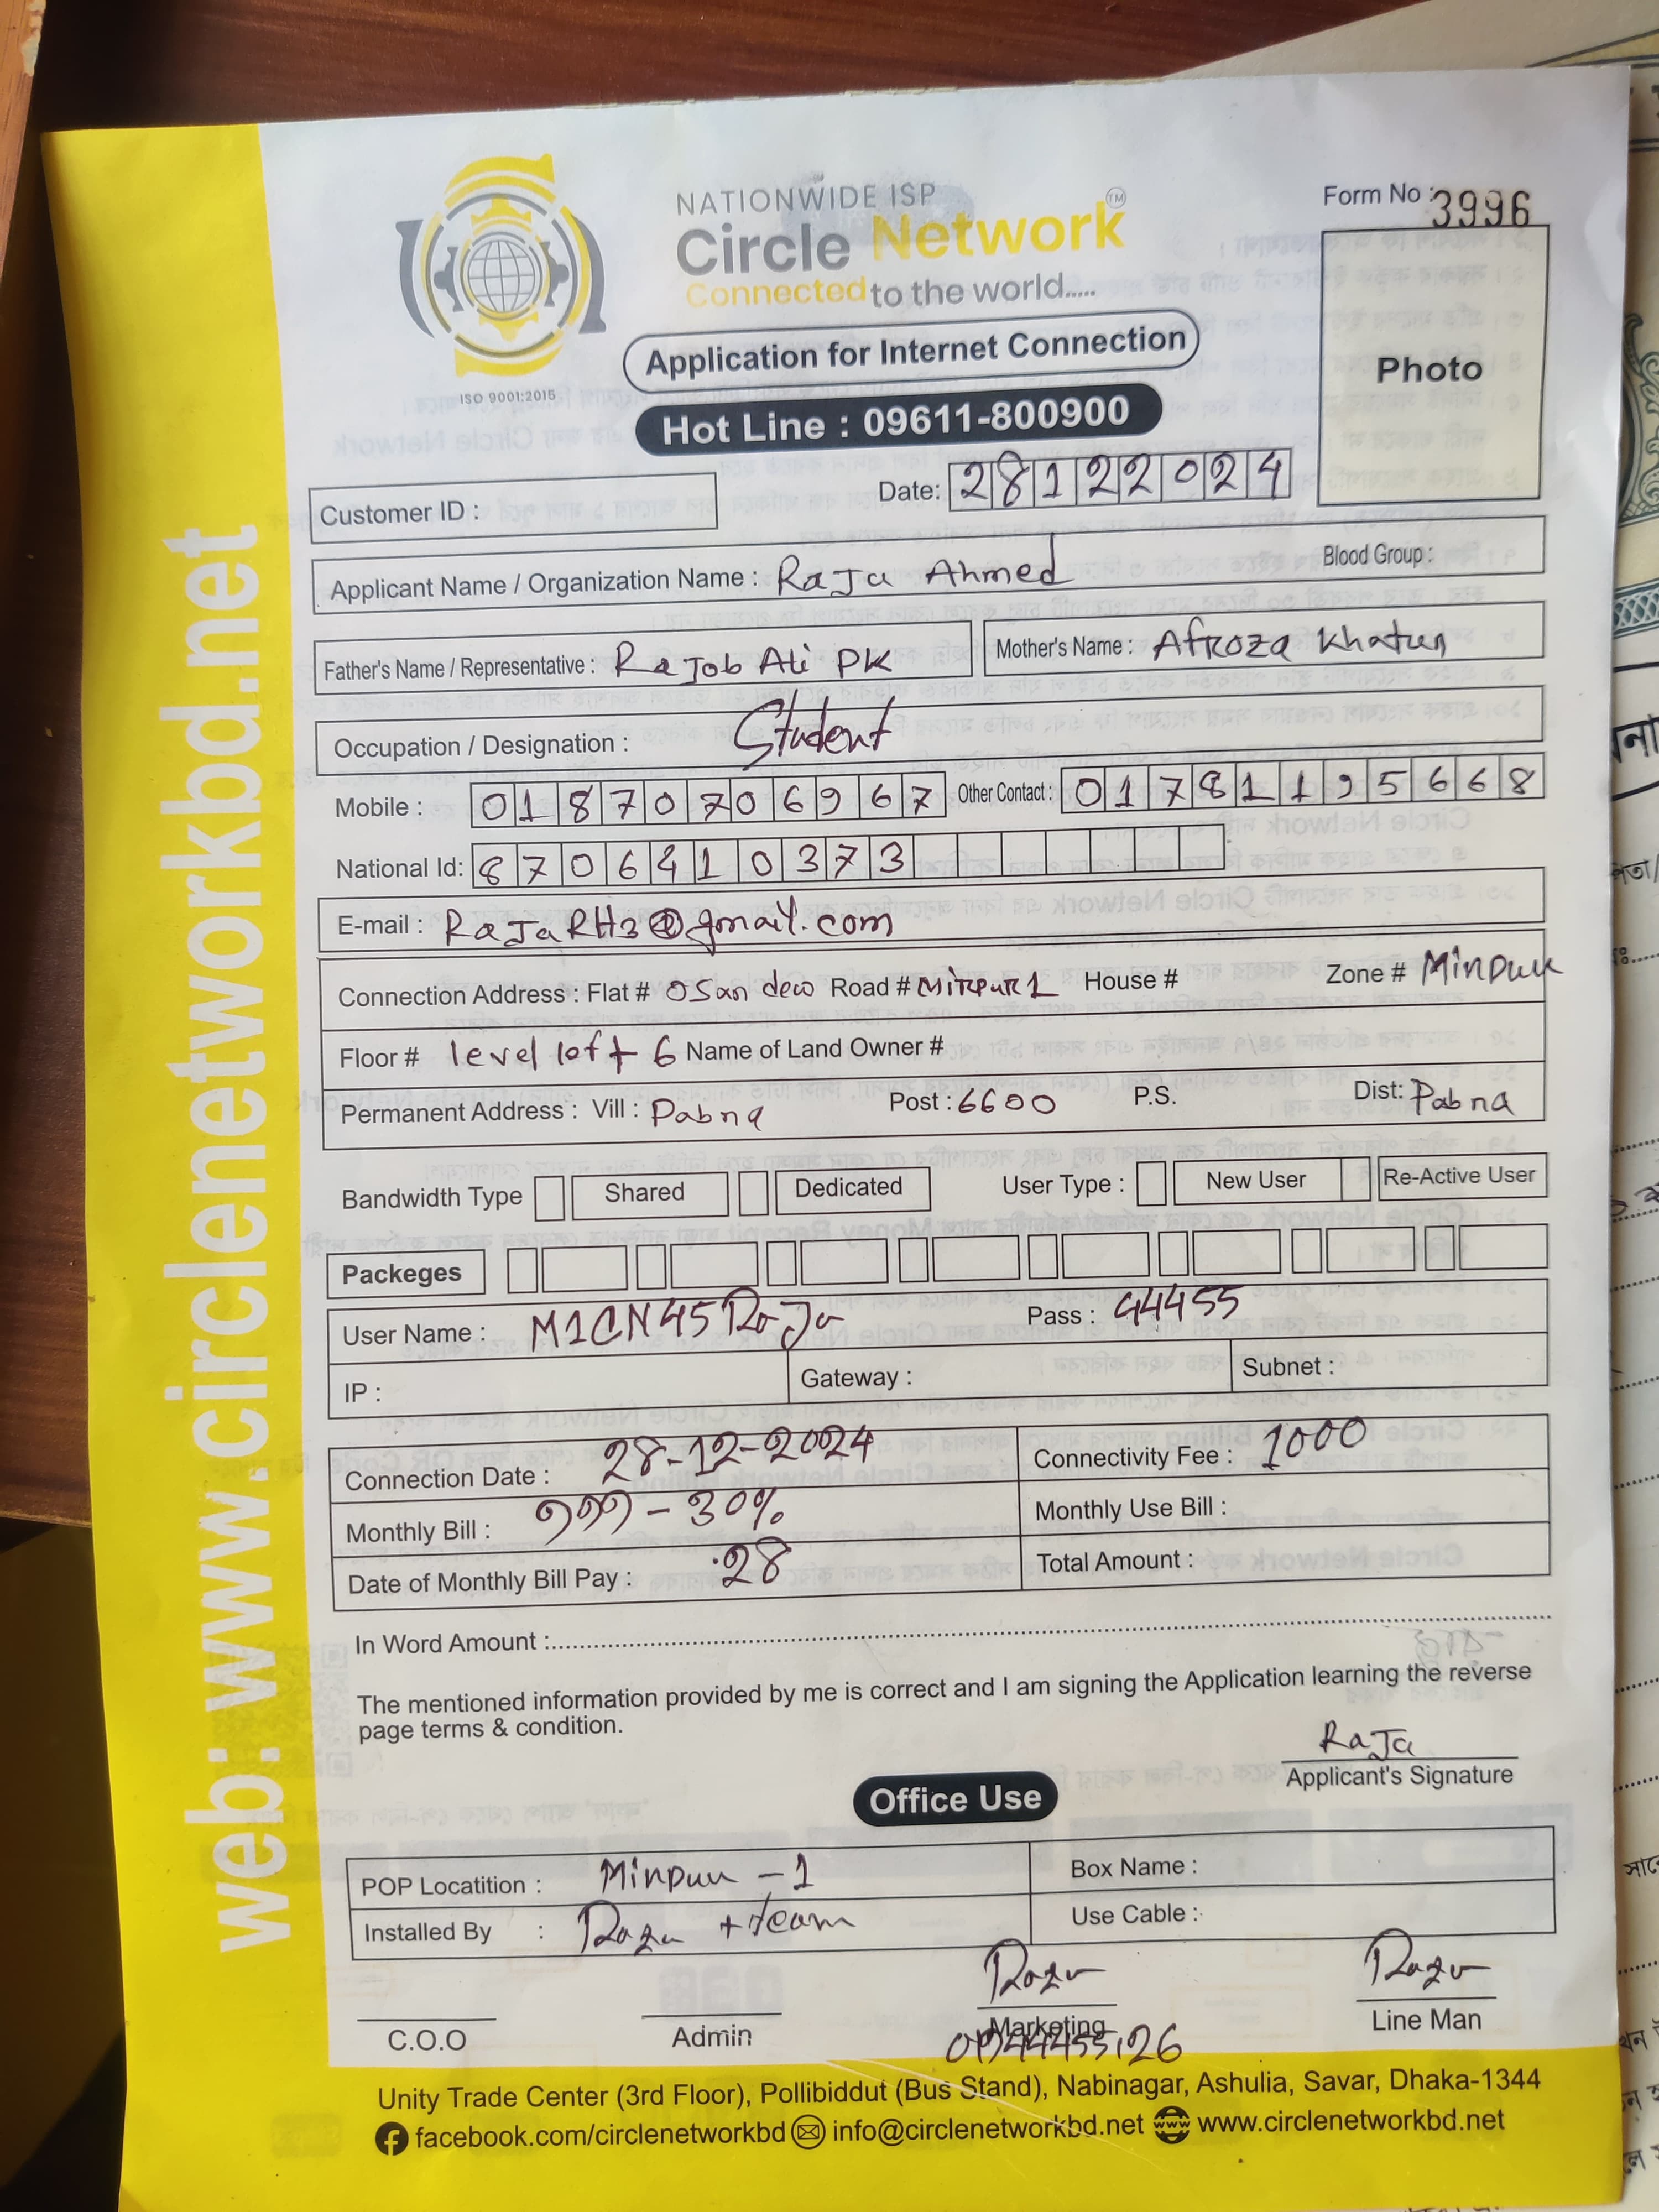 NATIONWIDE ISP
Circle Network TM
Connected to the world.....
ISO 9001:2015
Form No : 3996
Photo
Application for Internet Connection
Hot Line : 09611-800900
Date: 28122024
Customer ID :
Applicant Name / Organization Name : RaJa Ahmed Blood Group :
Father's Name / Representative : RaJob Ali PK Mother's Name : Afroza Khatun
Occupation / Designation : Student
Mobile : 01870706967 Other Contact : 01781195668
National Id: 8706410373
E-mail : RaJaRH3@gmail.com
Connection Address : Flat # Road # Mirpur 1 House # Zone # Mirpur
Floor # level left 6 Name of Land Owner #
Permanent Address : Vill : Pabna Post : 6600 P.S. Dist: Pabna
Bandwidth Type Shared Dedicated User Type : New User Re-Active User
Packeges
User Name : M1CN45RaJa Pass : 44455
IP : Gateway : Subnet :
Connection Date : 28-12-2024 Connectivity Fee : 1000
Monthly Bill : 999 - 30% Monthly Use Bill :
Date of Monthly Bill Pay : 28 Total Amount :
In Word Amount :
The mentioned information provided by me is correct and I am signing the Application learning the reverse
page terms & condition.
RaJa
Applicant's Signature
Office Use
POP Locatition : Mirpur -1 Box Name :
Installed By : Razu + team Use Cable :
Razu Razu
C.O.O Admin Marketing Line Man
Unity Trade Center (3rd Floor), Pollibiddut (Bus Stand), Nabinagar, Ashulia, Savar, Dhaka-1344
facebook.com/circlenetworkbd info@circlenetworkbd.net www www.circlenetworkbd.net
web: www.circlenetworkbd.net